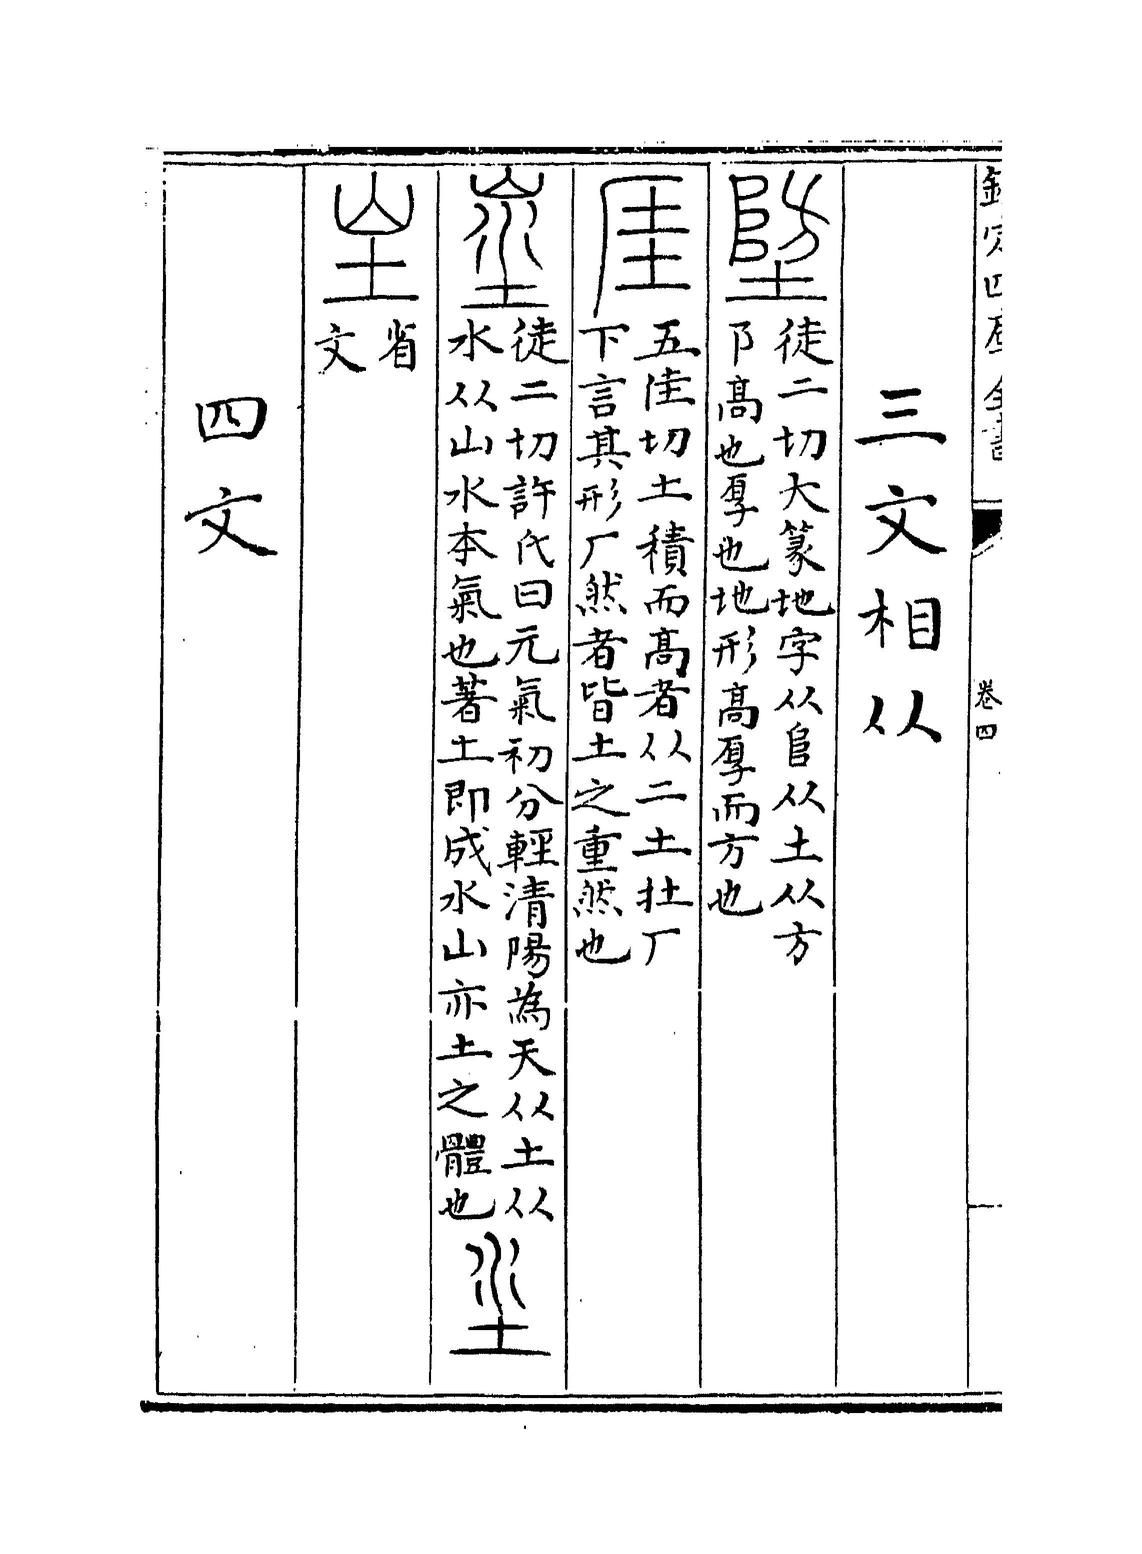 欽定四庫全書
卷四
三文相从
徒二切大篆地字从𨸏从土从方
阝髙也厚也地形髙厚而方也
厓
五佳切土積而髙者从二土扗厂
下言其形厂然者皆土之重然也
徒二切許氏曰元氣初分輕清陽為天从土从
水从山水本氣也著土即成水山亦土之體也
省
文
四文